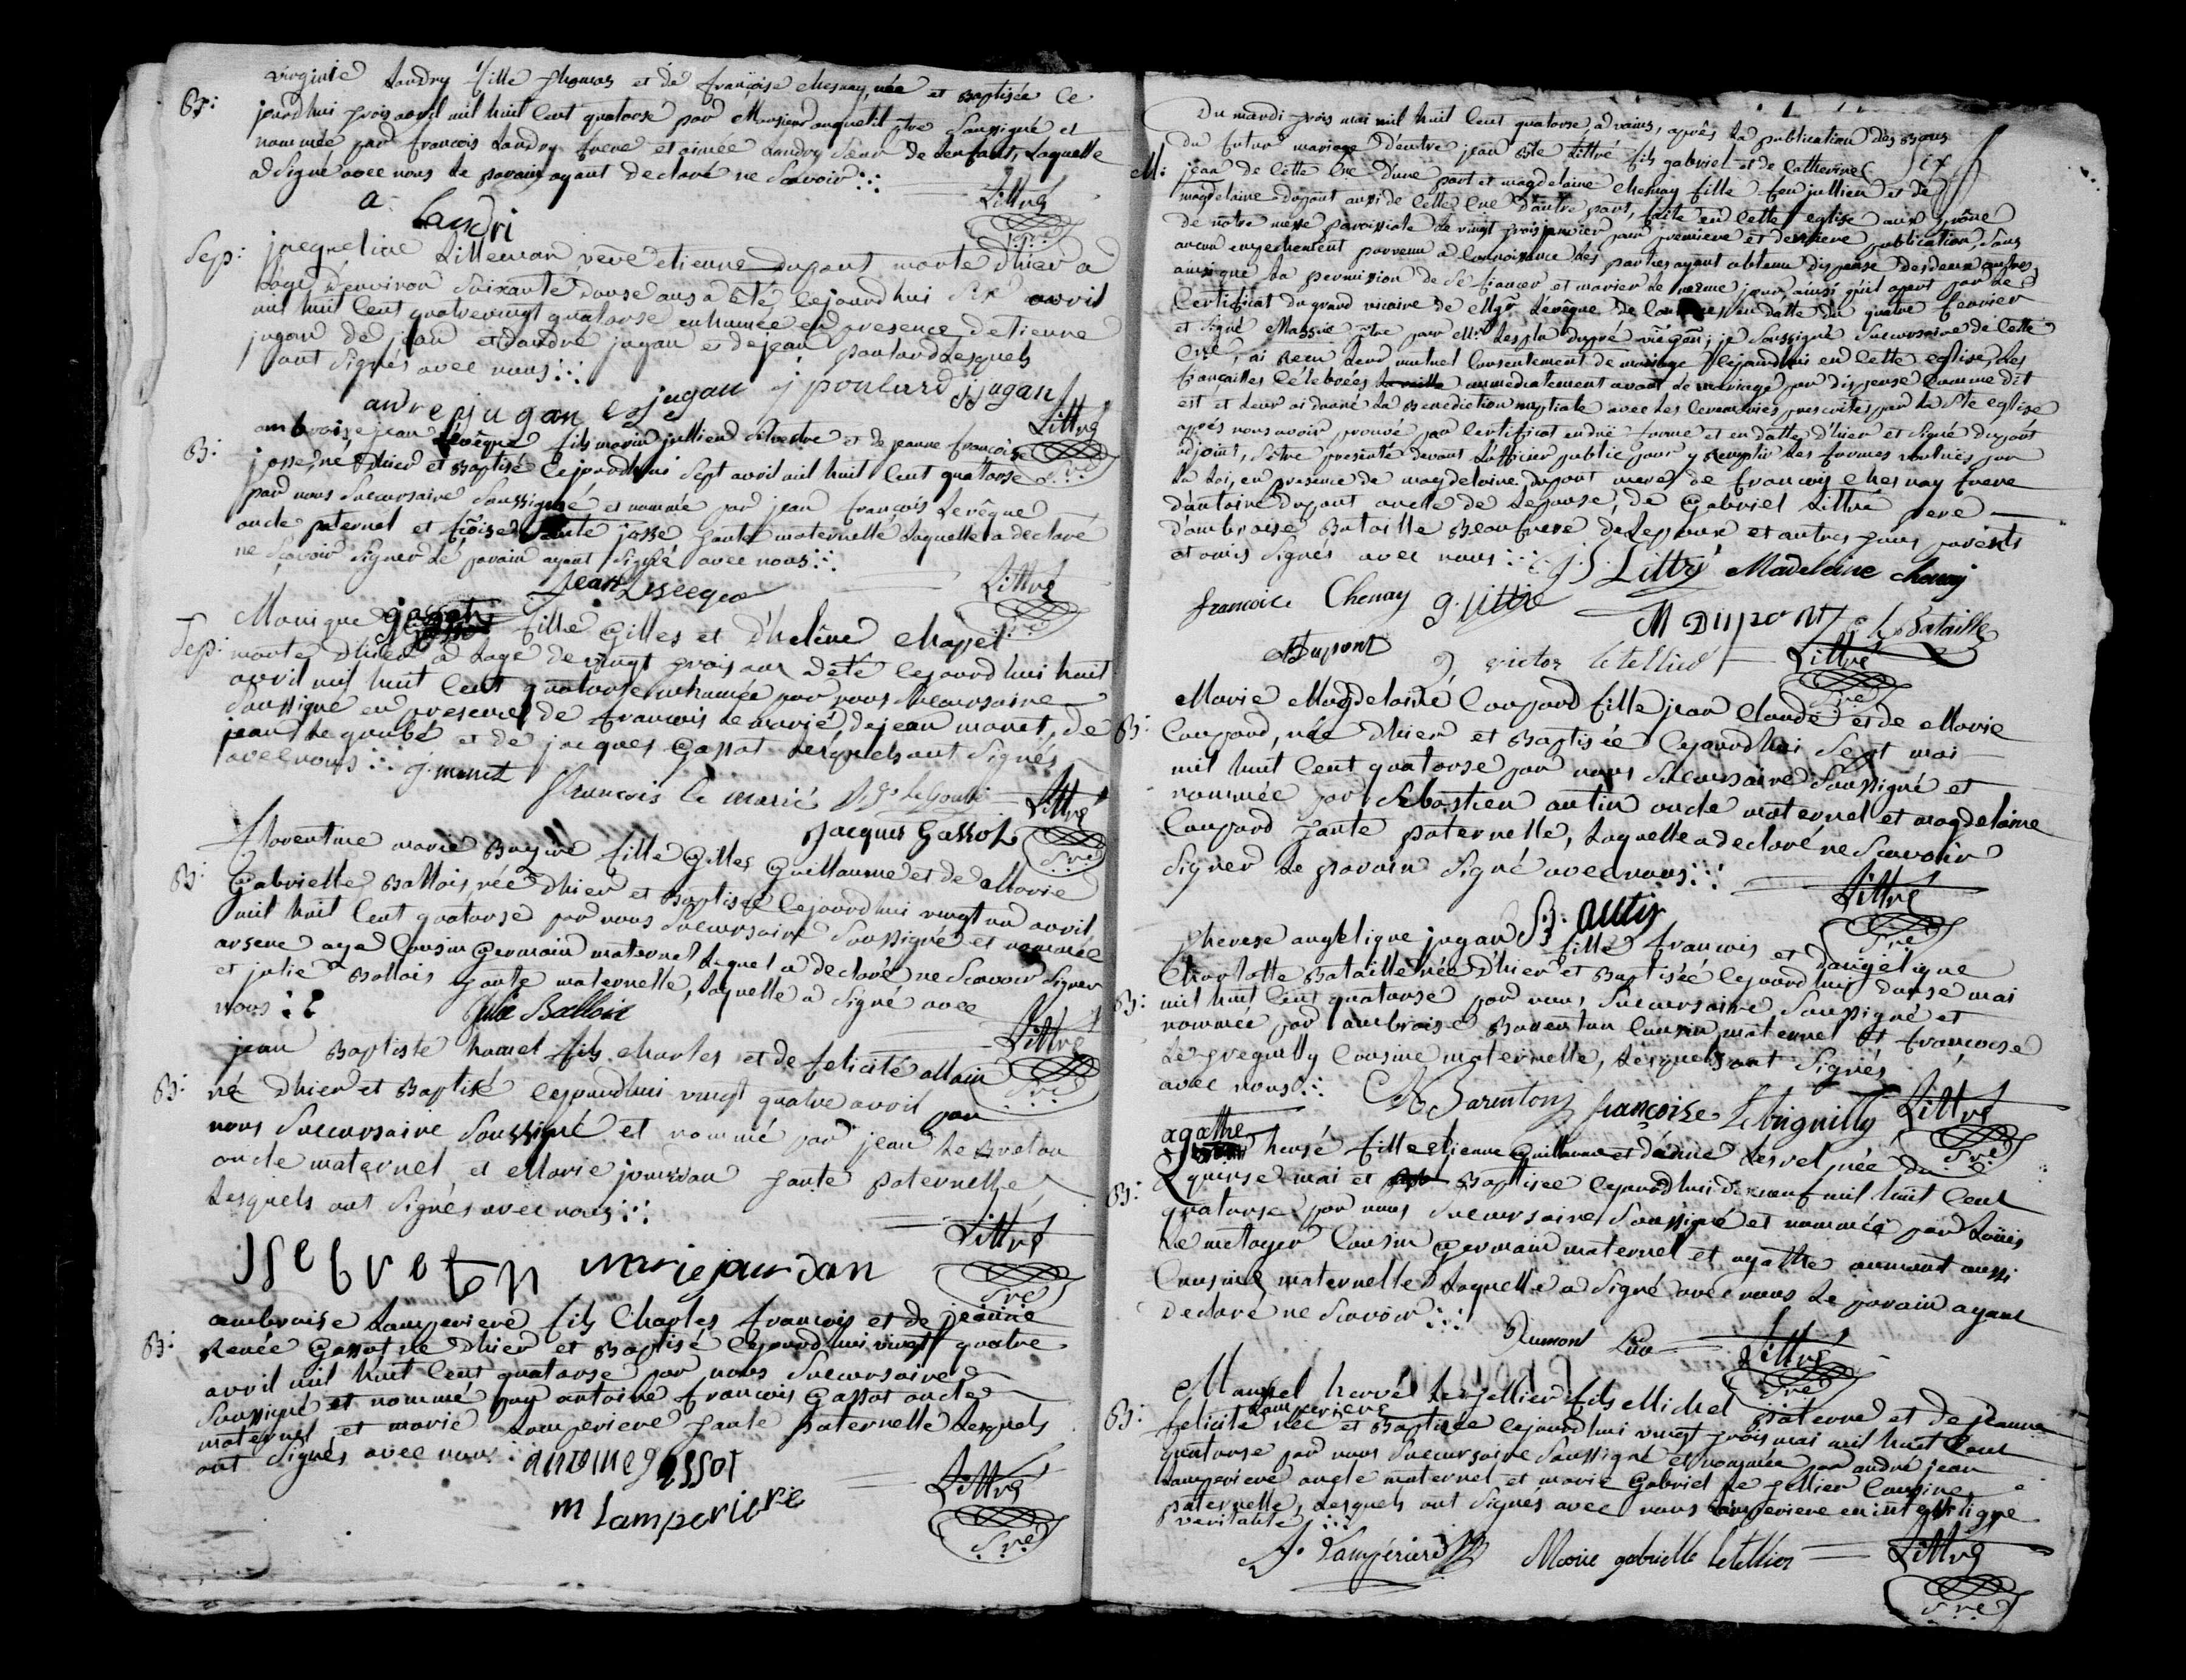 virginie Landry fille thomas et de françoise chesnay, née et Baptisée Ce
B:
jourdhui trois avril mil huit Cent quatorse par Monsieur anquetil ptre Soussigné et
nommée par francois Landry frere et aimée Landry Sœur de Lenfant, Laquelle
a Signé avec nous Le parain ayant declaré ne Scavoir
a Landri
Littré
Sre
Sep:
jacqueline Littemar veve etienne dupont morte dhier a
Lage d'environ Soixante douse ans a été Cejourdhui Six avril
mil huit Cent quatrevingt quatorse inhumée en presence detienne
jugan de jean et dandré jugan et de jean poulard Lesquels
ont Signés avec nous
andre jugan e jugan j poulard j jugan
Littré
Sre
B:
ambroise jean Levêque fils marin jullien Silvestre et de jeanne françoise
josse, né dhier et Baptisé Cejourdhui Sept avril mil huit Cent quatorse
par nous Succursaire Soussigné et nommé par jean françois Levêque
oncle paternel et fçoise josse tante maternelle Laquelle a declaré
ne Scavoir Signer Le parain ayant Signé avec nous
Jean Leveque
Littré
Sre
Monique gassot fille Gilles et d'helêne chapel
Sep:
morte dhier a Lage de vingt trois ans a été Cejourdhui huit
avril mil huit Cent quatorse inhumée par nous Succursaire
Soussigné en presence de francois Le marié, de jean monet, de
jean Le goubé et de jacques Gassot Lesquels ont Signés
avec nous
g. monet francois le marié Le Goubé
Jacques Gassot
Littré
Sre
florentine marie fille Gilles Guillaume et de Marie
B:
Gabrielle Ballois, née dhier et Baptisée Cejourdhui vingt un avril
mil huit Cent quatorse par nous Succursaire Soussigné et nommée
arsene Cousin Germain maternel Lequel a declaré ne Scavoir Signer
et julie Ballois tante maternelle, Laquelle a Signé avec
nous
Julie Ballois
Littré
Sre
jean Baptiste hamel fils charles et de felicité allain
B:
né dhier et Baptisé Cejourdhui vingt quatre avril par
nous Succursaire Soussigné et nommé par jean Le breton
oncle maternel et Marie jourdan tante paternelle
Lesquels ont Signés avec nous
J le breton marie jourdan
Littré
Sre
ambroise Lamperiere fils Charles francois et de jeanne
B:
Renée Gassot né dhier et Baptisé Cejourdhui vingt quatre
avril mil huit Cent quatorse par nous Succursaire
Soussigné et nommé par antoine francois Gassot oncle
maternel et marie Lamperiere tante paternelle Lesquels
ont Signés avec nous
antoine gassot
m Lamperiere
Littré
Sre
Six
Du mardi trois mai mil huit Cent quatorse, a vains, après La publication des Bans
M:
du futur mariage d'entre jean Bte Littré fils gabriel et de Catherine
jean de Cette Cne d'une part et magdelaine chesnay fille feu jullien et de
magdelaine dupont aussi de Cette Cne d'autre part, faite en Cette eglise aux prône
de notre messe paroissiale Le vingt trois janvier pour premiere et derniere publication, Sans
aucun empechement parvenu a Connoissance Les parties ayant obtenu dispense des deux autres,
ainsi que La permission de Se fiancer et marier Le même jour ainsi qu'il apert par Le
Certificat du grand vicaire de Mgr Levêque de Coutances en datte du quatre fevrier
et Signé ptre pour Mr dupré ; je Soussigné Succursaire de Cette
Cne, ai recu Leur mutuel Consentement de mariage Cejourdhui en Cette eglise, Les
fiançailles Célebrées immediatement avant Le mariage par dispense Comme dit
est et Leur ai donné La Benediction nuptiale avec Les Ceremonies prescrites par La Ste eglise
après nous avoir prouvé par Certificat en duë forme et en datte d'hier et Signé dupont
adjoint, S'etre presenté devant L'officier public pour y remplir Les formes voulues par
La Loi, en presence de magdelaine dupont mere, de francois chesnay frere
d'antoine dupont oncle de Lepouse, de Gabriel Littré pere
d'ambroise Bataille Beaufrere de Lepoux et autres tous parents
et amis Signés avec nous
j.B. Littré Madeleine chenay
francoise Chenay g. Littré
M Dupont Bataille
A Dupont victor letellier
Littré
Sre
Marie Magdelaine Coupard fille jean Claude et de Marie
B:
Coupard, née dhier et Baptisée Cejourdhui Sept mai
mil huit Cent quatorse par nous Succursaire Soussigné et
nommée par Sebastien autin oncle maternel et magdelaine
Coupard tante paternelle, Laquelle a declaré ne Scavoir
Signer Le parain Signé avec nous
S. autin
Littré
Sre
therese angelique jugan fille francois et d'angelique
B:
Charlotte Bataille née dhier et Baptisée Cejourdhui douse mai
mil huit Cent quatorse par nous Succursaire Soussigné et
nommée par ambroise Barenton Cousin maternel et francoise
Le breguilly Cousine maternelle, Lesquels ont Signés
avec nous
A Barenton françoise Lebriguilly
Littré
Sre
agathe
hersé fille etienne Guillaume et d'année Lesvel, née du
B:
quinse mai et Baptisée Cejourdhui dixneuf mil huit Cent
quatorse par nous Succursaire Soussigné et nommée par Loüis
Le metayer Cousin Germain maternel et agathe aumont aussi
Cousine maternelle Laquelle a Signé avec nous Le parain ayant
declaré ne Scavoir
Aumont
Littré
Sre
Manuel hervé Letellier fils Michel paterne et de jeanne
B:
Lamperiere
felicité née et Baptisée Cejourdhui vingt trois mai mil huit Cent
quatorse par nous Succursaire Soussigné et nommée par andré jean
Lamperiere oncle maternel et marie Gabriel Le tellier Cousine
paternelle, Lesquels ont Signés avec nous Lamperiere en interligne
veritable
A. Lampérière Marie gabrielle letellier
Littré
Sre